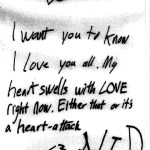 I want you to know
I love you all. My
heart swells with LOVE
right now. Either that or it's
a heart-attack
<3